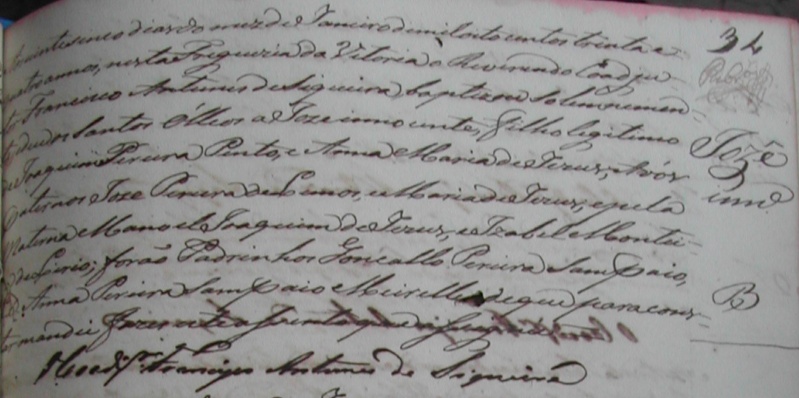 vinte sinco dias do mez de Janeiro de mil oito centos trinta e
quatro annos, nesta Freguezia da Vitoria o Reverendo Coadju-
Francisco Antunes de Siqueira, baptizou solemnemen-
te deu os Santos Óleos a Joze innocente, filho legitimo
de Joaquim Pereira Pinto, e Anna Maria de Jezus, Avós
Paternos Joze Pereira de Lemos, e Maria de Jezus, e pela
Materna Manoel Joaquim de Jezus, e Izabel Montei-
forão Padrinhos Goncallo Pereira Sampaio,
Anna Pereira Sampaio Meirelles de que para cons-
tar mandei fazer este assento que assignei
O Coadjor Francisco Antunes de Siqueira
34
Rubrica
Jozê
inne
B